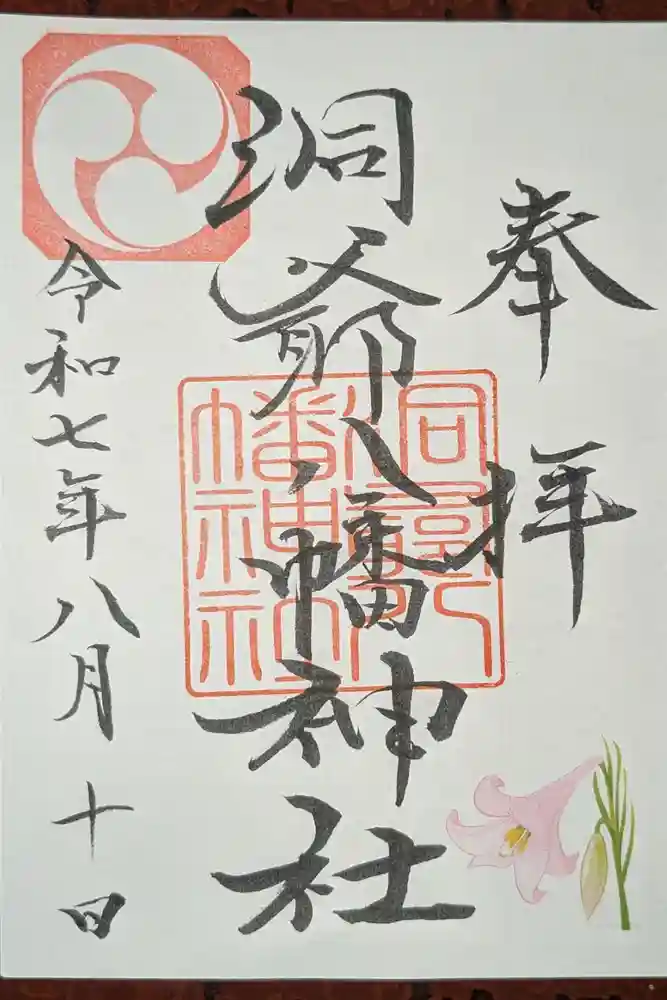 奉拝
洞爺八幡神社
洞爺八
幡神社
令和七年八月十日